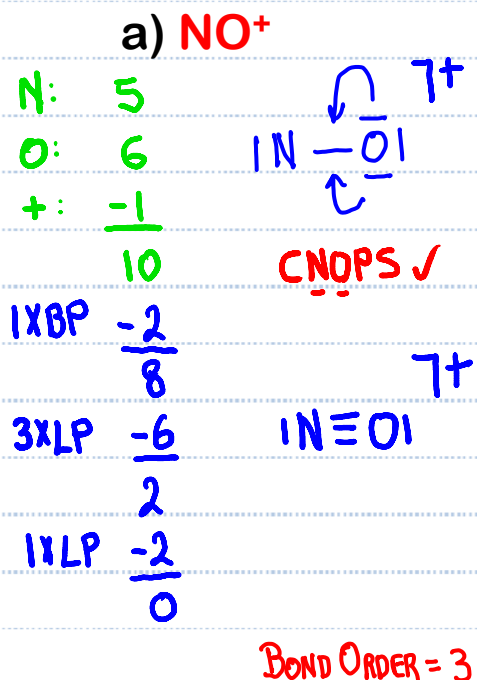 a) NO⁺
N: 5
O: 6
+: -1
10
1XBP -2
8
3XLP -6
2
1XLP -2
0
|N — O| ⌉+
CNOPS ✓
|N≡O| ⌉+
BOND ORDER = 3